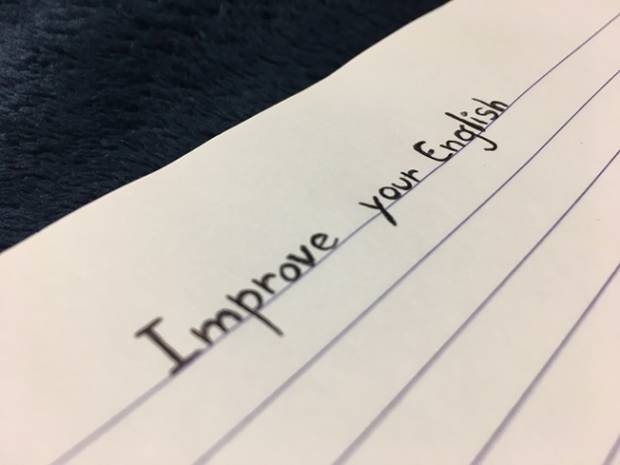 Improve your English